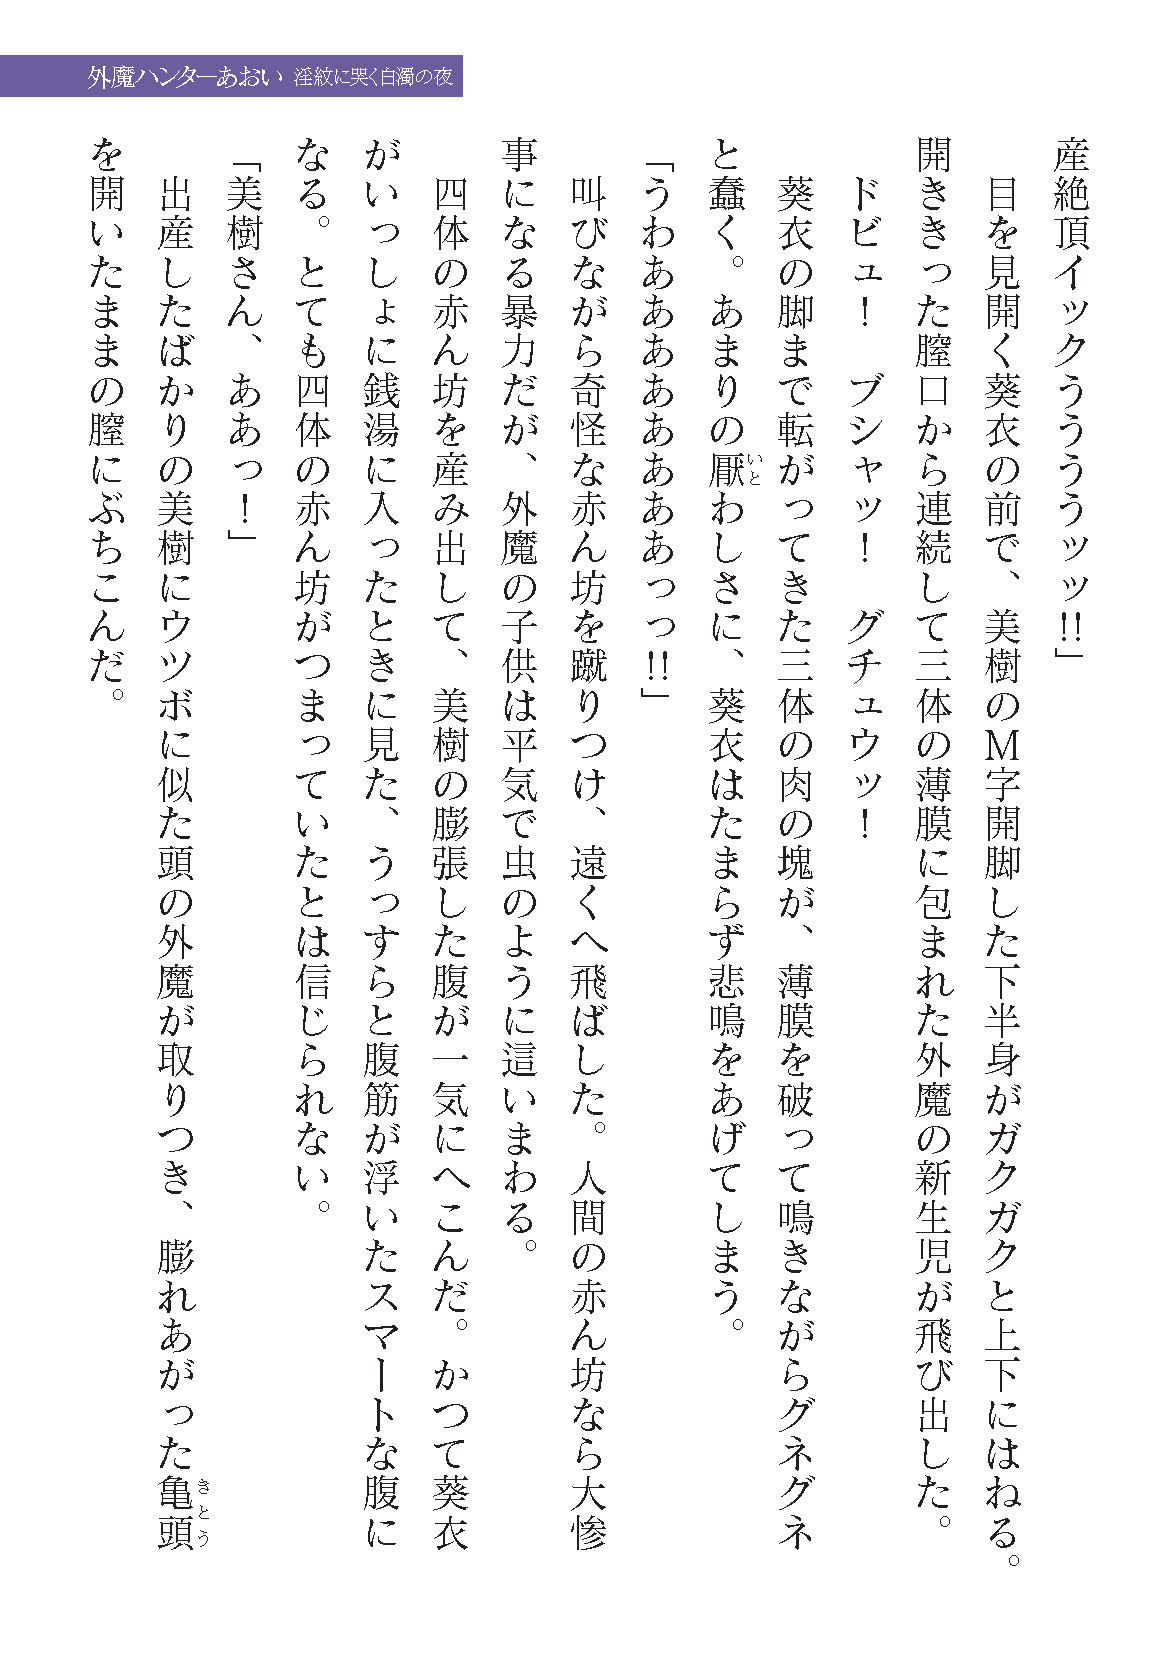 外魔ハンターあおい 淫紋に哭く白濁の夜
産絶頂イックううううッッ!!」
　目を見開く葵衣の前で、美樹のＭ字開脚した下半身がガクガクと上下にはねる。
開ききった膣口から連続して三体の薄膜に包まれた外魔の新生児が飛び出した。
　ドビュ！　ブシャッ！　グチュウッ！
　葵衣の脚まで転がってきた三体の肉の塊が、薄膜を破って鳴きながらグネグネ
と蠢く。あまりの厭わしさに、葵衣はたまらず悲鳴をあげてしまう。
「うわあああああああっっ!!」
　叫びながら奇怪な赤ん坊を蹴りつけ、遠くへ飛ばした。人間の赤ん坊なら大惨
事になる暴力だが、外魔の子供は平気で虫のように這いまわる。
　四体の赤ん坊を産み出して、美樹の膨張した腹が一気にへこんだ。かつて葵衣
がいっしょに銭湯に入ったときに見た、うっすらと腹筋が浮いたスマートな腹に
なる。とても四体の赤ん坊がつまっていたとは信じられない。
「美樹さん、ああっ！」
　出産したばかりの美樹にウツボに似た頭の外魔が取りつき、膨れあがった亀頭
を開いたままの膣にぶちこんだ。
いと
きとう